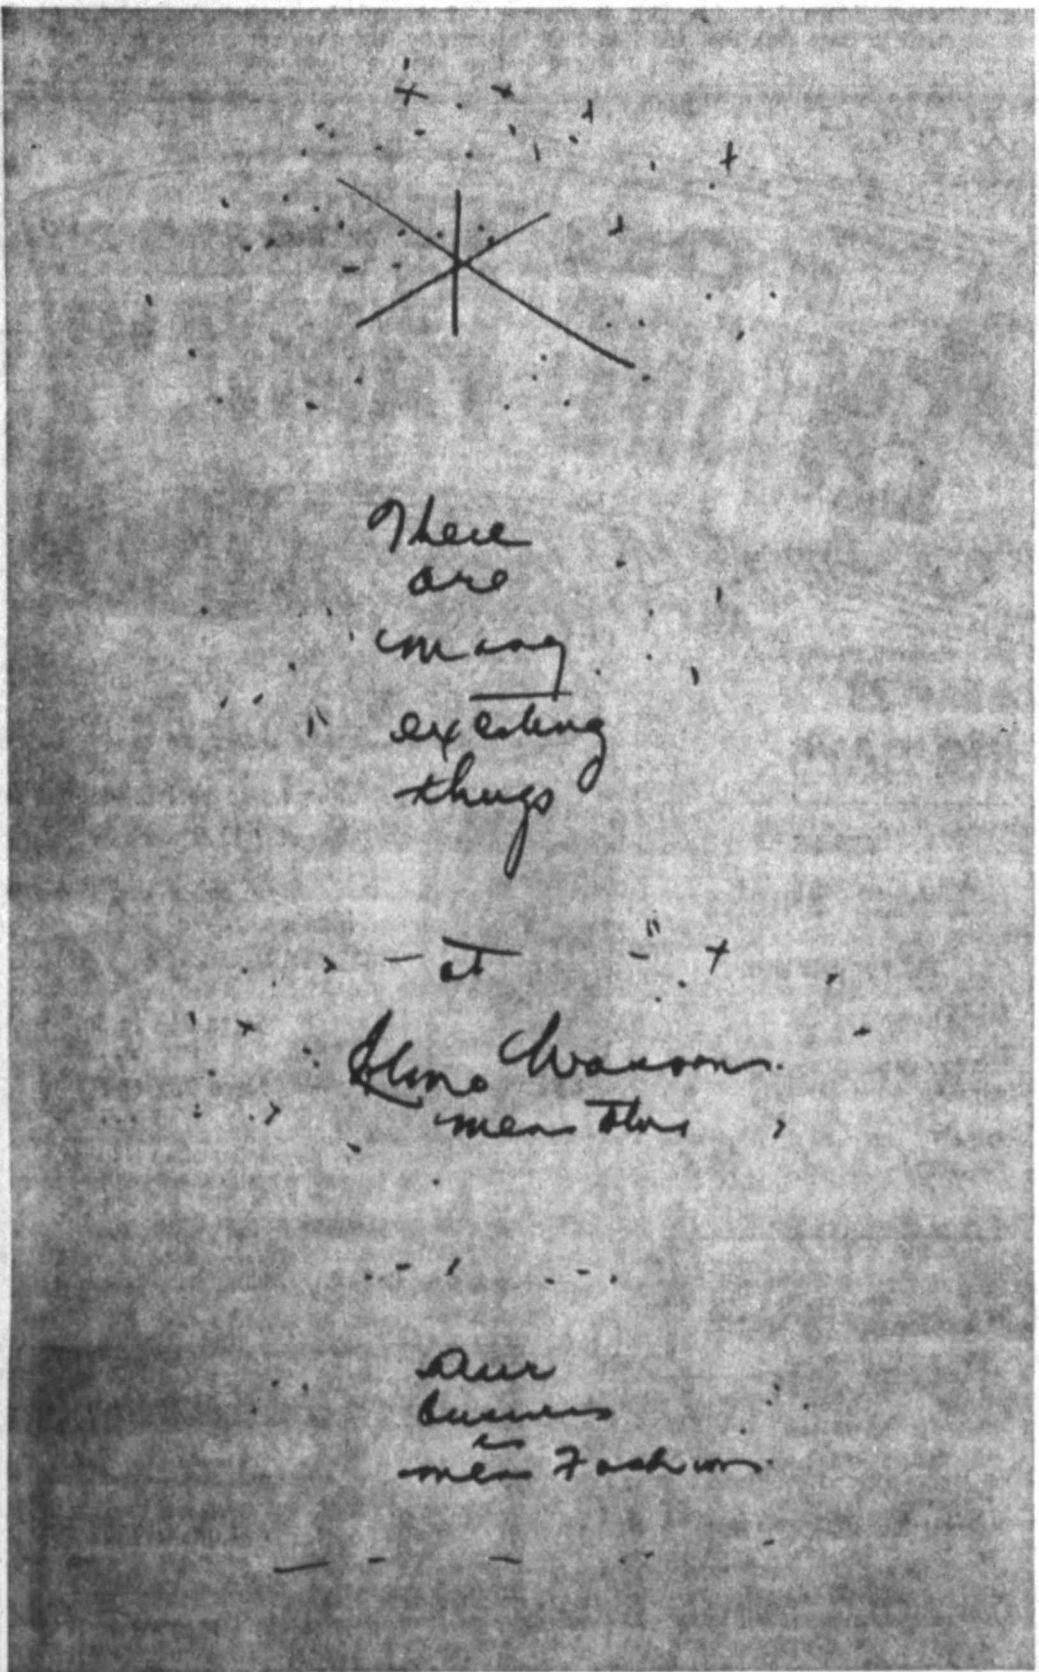 There
are
many
exciting
things
at
Elmo Wasson
mens
Our
business
is
mens Fashions